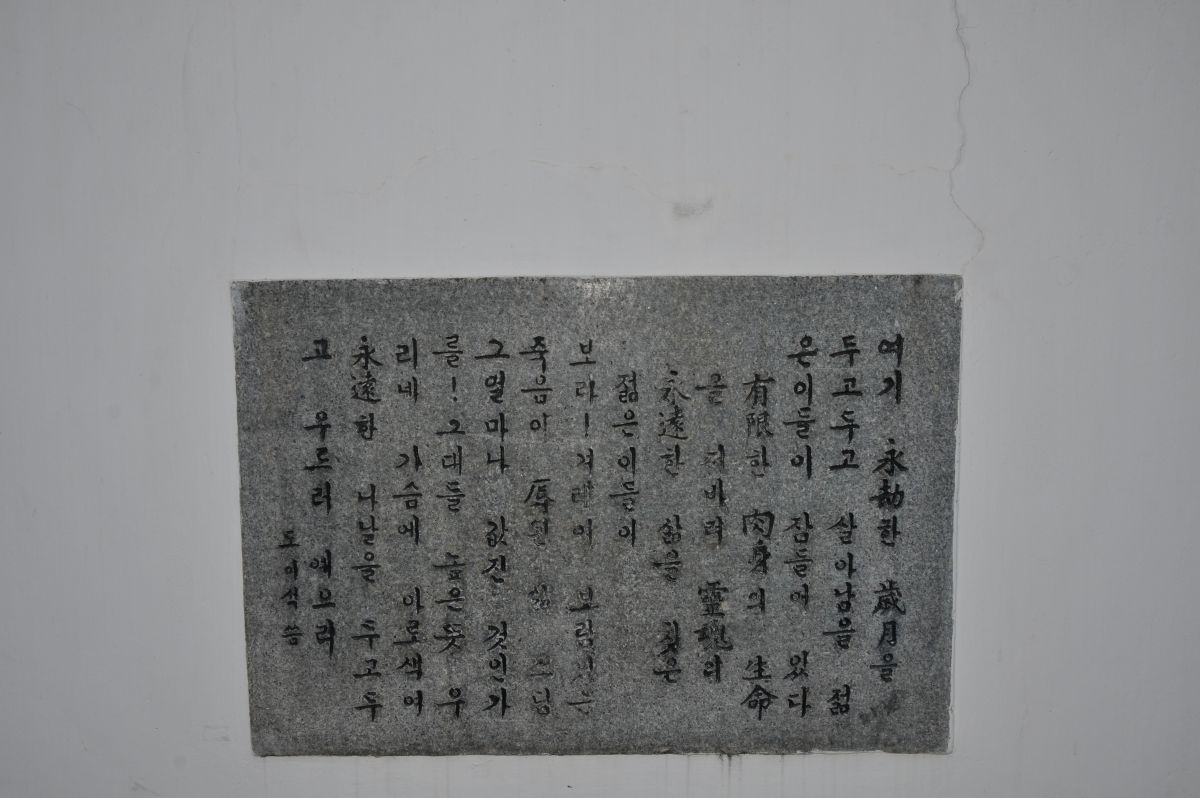 여기 永劫한 歲月을
두고두고 살아남을 젊
은이들이 잠들어 있다
有限한 肉身의 生命
을 저바려 靈魂의
永遠한 삶을 찾은
젊은이들이
보라! 겨레에 보람있는
죽음이 辱된 삶 보딩
그 얼마나 값진 것인가
를! 그대들 높은 뜻 우
리네 가슴에 아로색여
永遠한 나날을 두고두
고 우르러 예으리